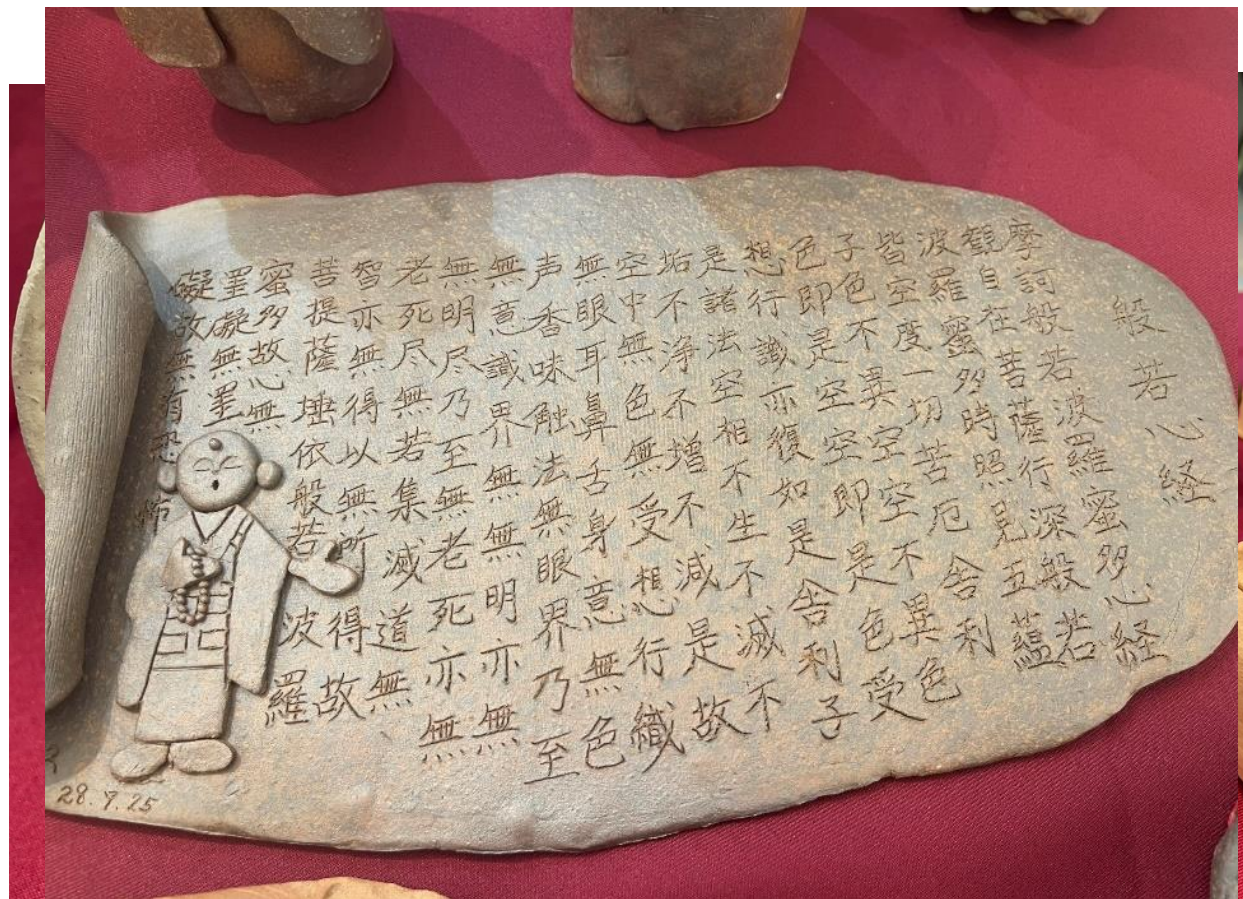 般若心経
摩訶般若波羅蜜多心経
観自在菩薩行深般若
波羅蜜多時照見五蘊
皆空度一切苦厄舎利
子色不異空空不異色
色即是空空即是色受
想行識亦復如是舎利子
是諸法空相不生不滅不
垢不浄不増不減是故
空中無色無受想行織
無眼耳鼻舌身意無色
声香味触法無眼界乃至
無意識界無無明亦無
無明尽乃至無老死亦無
老死尽無若集滅道無
智亦無得以無所得故
菩提薩埵依般若波羅
蜜多故心無
罣礙無罣
礙故無有恐怖
28.9.25